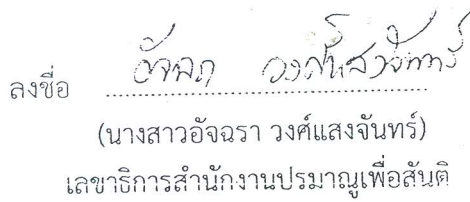 ลงชื่อ อัจฉรา วงศ์แสงจันทร์
(นางสาวอัจฉรา วงศ์แสงจันทร์)
เลขาธิการสำนักงานปรมาณูเพื่อสันติ